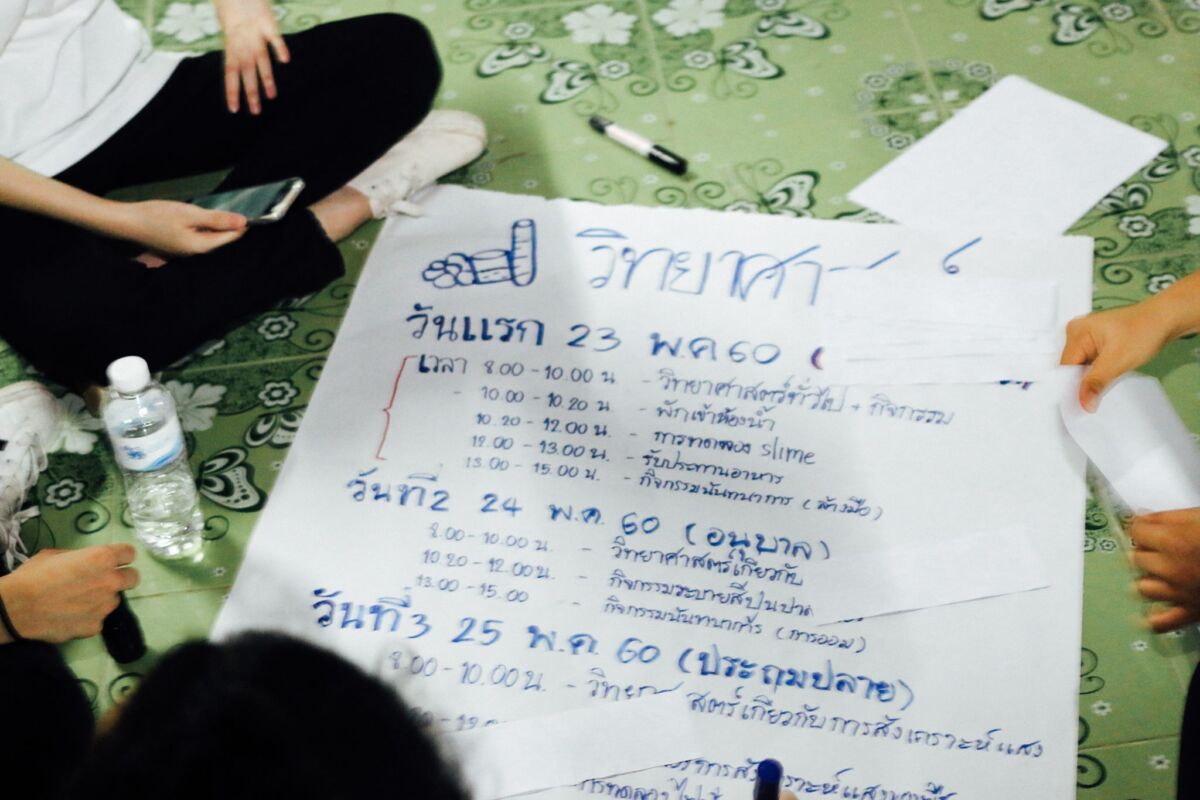 วิทยาศา
วันแรก 23 พ.ค 60 (
เวลา 8.00 - 10.00 น - วิทยาศาสตร์ทั่วไป + กิจกรรม
- 10.00 - 10.20 น. - พักเข้าห้องน้ำ
10.20 - 12.00 น. - การทดลอง slime
12.00 - 13.00 น. - รับประทานอาหาร
13.00 - 15.00 น. - กิจกรรมนันทนาการ (ล้างมือ)
วันที่2 24 พ.ค. 60 (อนุบาล)
8.00 - 10.00 น. - วิทยาศาสตร์เกี่ยวกับ
10.20 - 12.00 น. - กิจกรรมระบายสีปูนปาด
13.00 - 15.00 - กิจกรรมนันทนาการ (การออม)
วันที่3 25 พ.ค. 60 (ประถมปลาย)
8.00 - 10.00 น. - วิทยาสตร์เกี่ยวกับการสังเคราะห์แสง
การสังเคราะห์แสงของพืช
การทดลอง